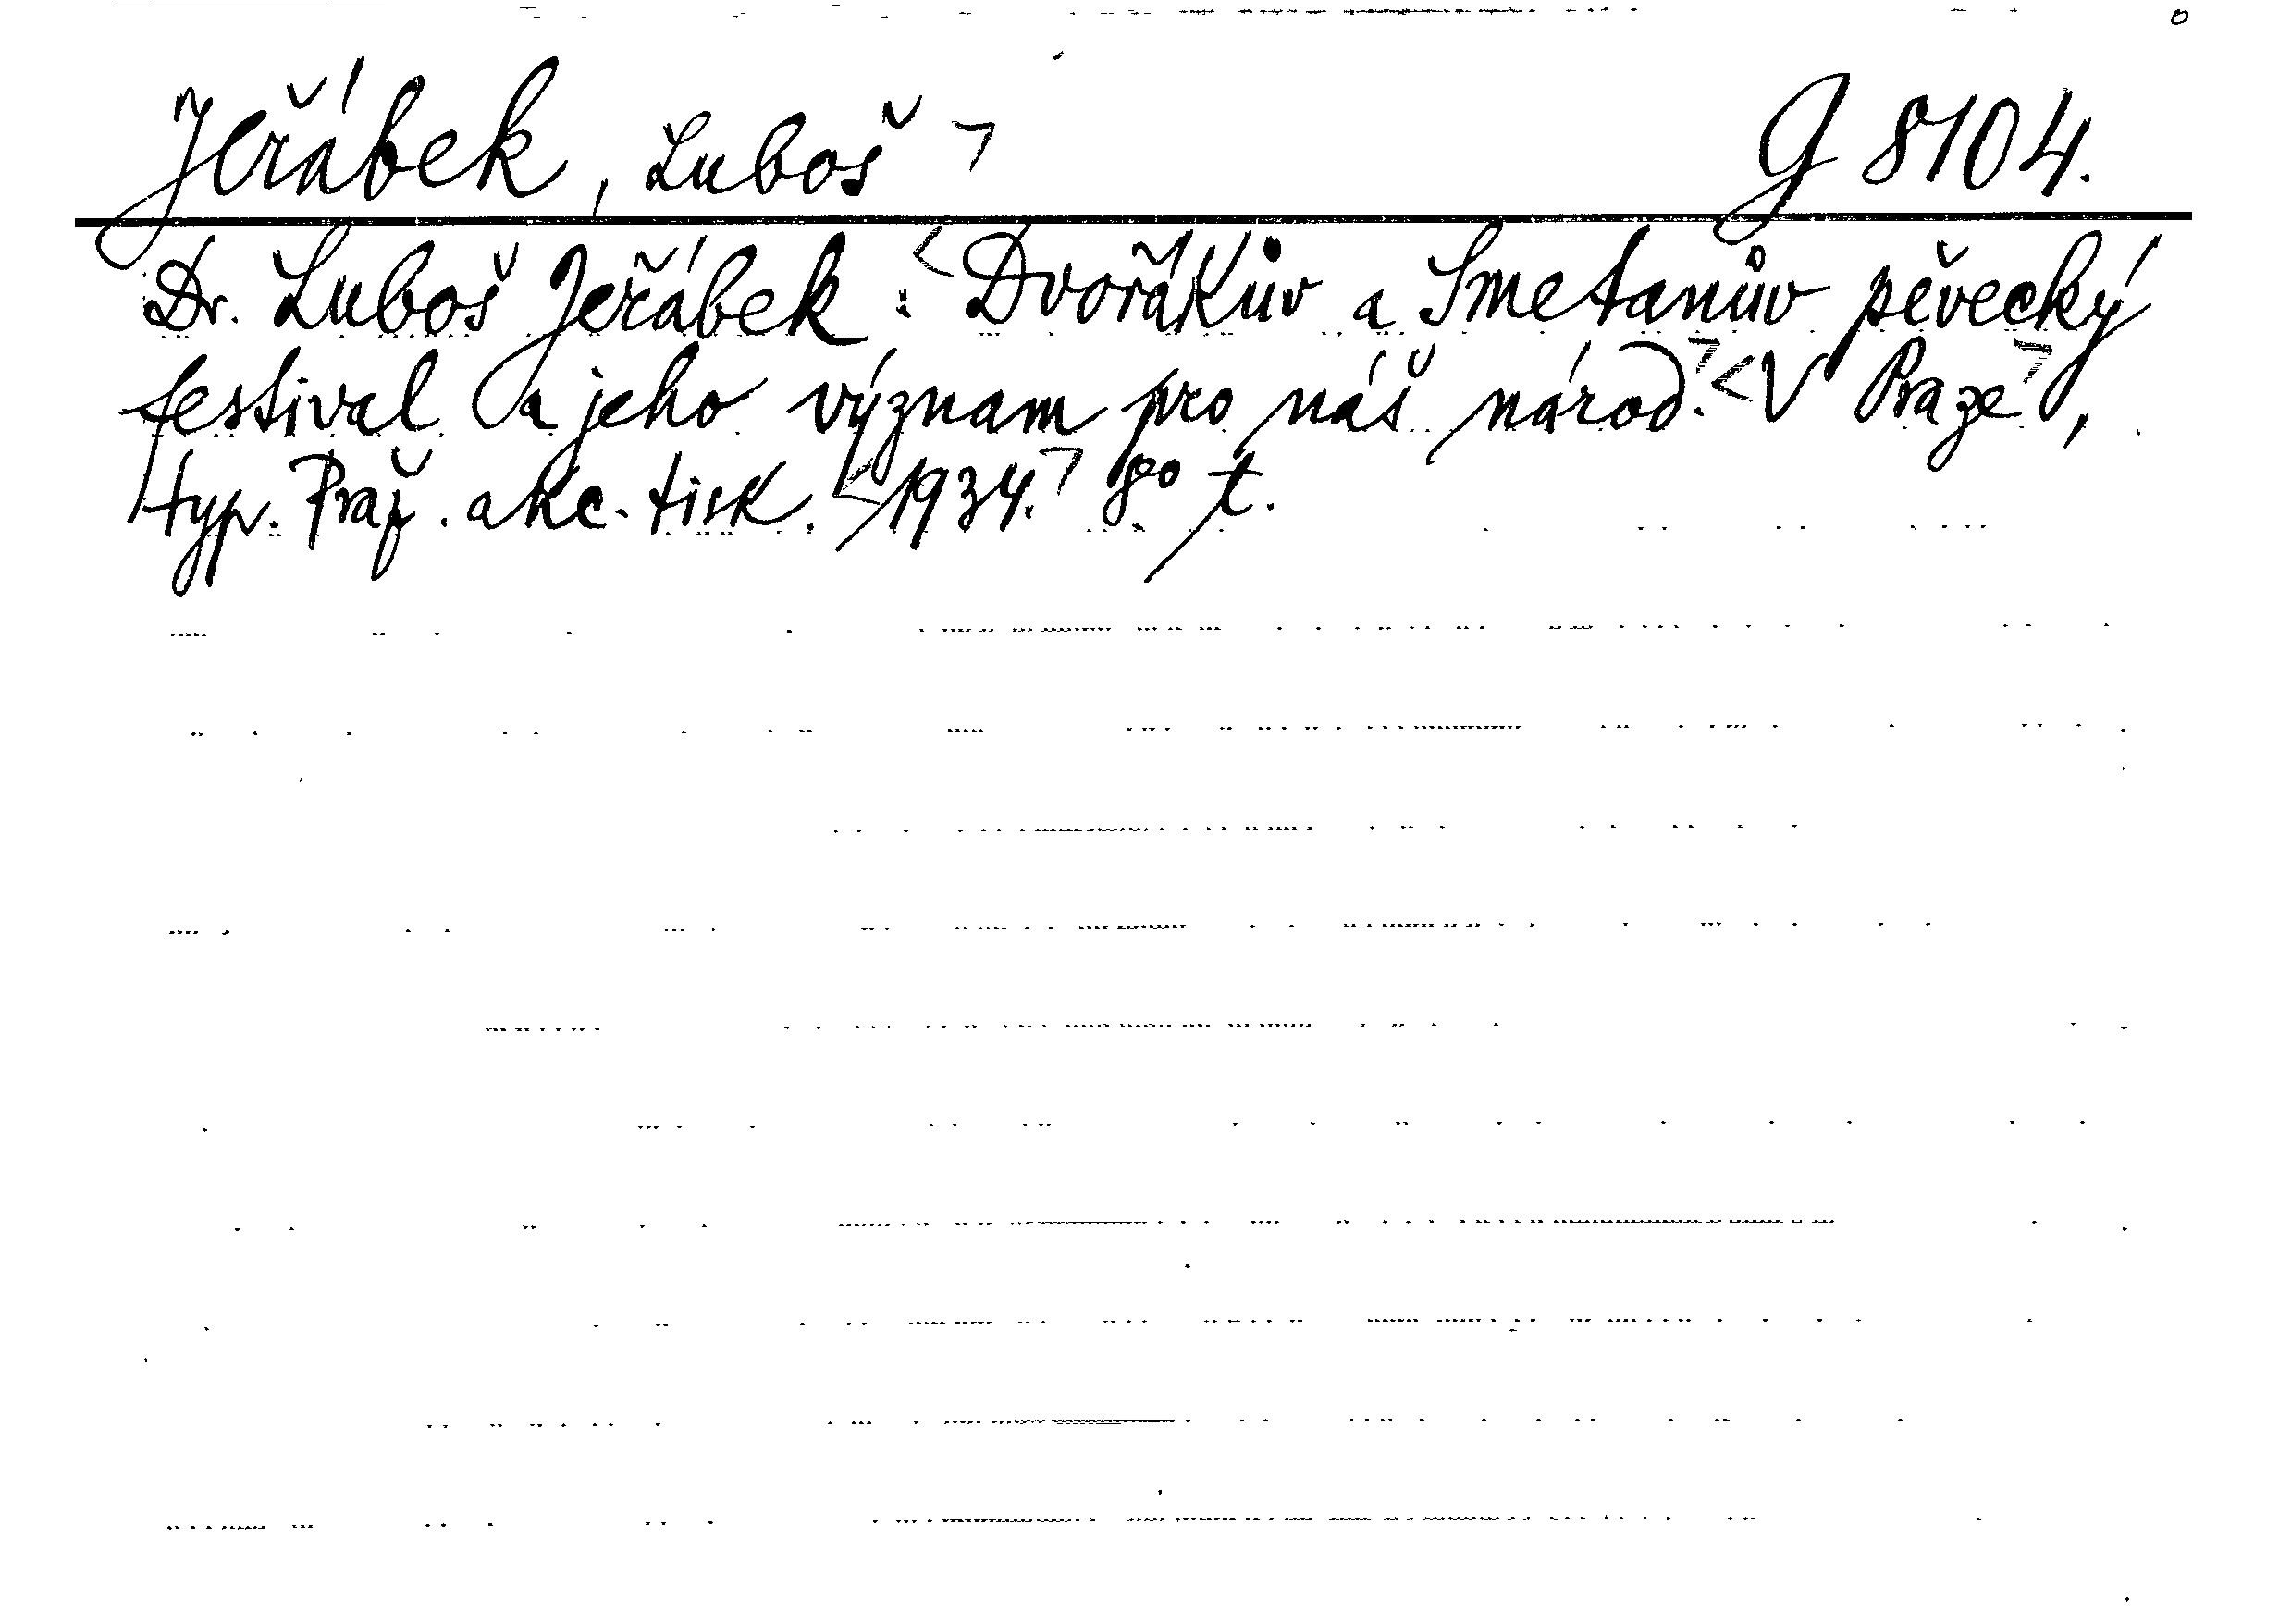 Jeřábek, Luboš ㄱ G 8104.
Dr. Luboš Jeřábek: <Dvořákův a Smetanův pěvecký
festival a jeho význam pro náš národ.ㄱ <V Prazeㄱ,
typ. Praž. akc. tisk. <1934.ㄱ 8° t.